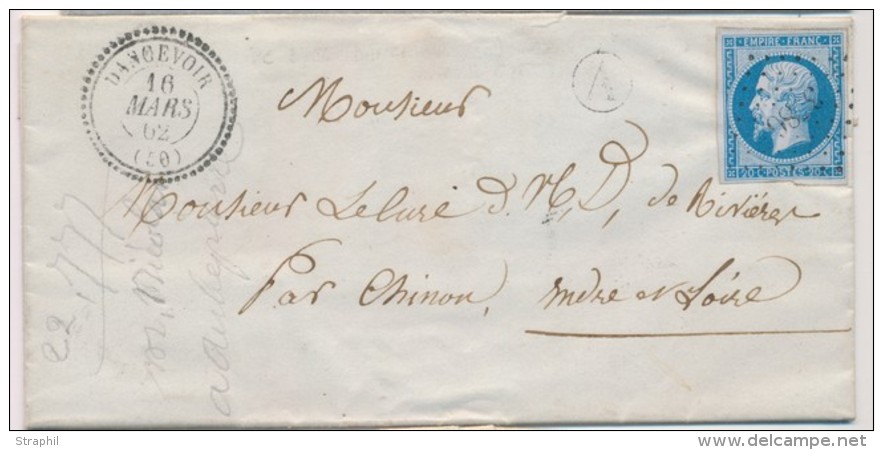 DANCEVOIR
16
MARS
62
(50)
A
EMPIRE FRANC.
20 C. POSTES 20 C.
Monsieur
Monsieur Le Curé d. N, D, de Rivières
Par Chinon, Indre et Loire
22,77
Straphil
www.delcampe.net